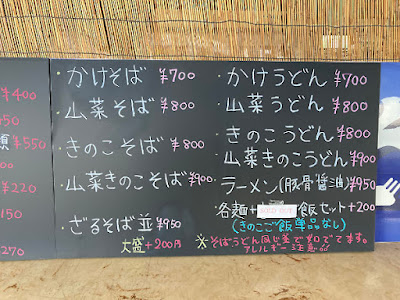 ¥400
¥550
¥220
150
270
・かけそば ¥700
・山菜そば ¥800
・きのこそば ¥800
・山菜きのこそば ¥900
・ざるそば並 ¥950
大盛+200円
・かけうどん ¥700
・山菜うどん ¥800
・きのこうどん ¥800
・山菜きのこうどん ¥900
ラーメン(豚骨醤油) ¥950
・各麺+ 飯セット+200
(きのこご飯単品なし)
※そばうどん同じ釜でゆでてます。
アレルギー注意